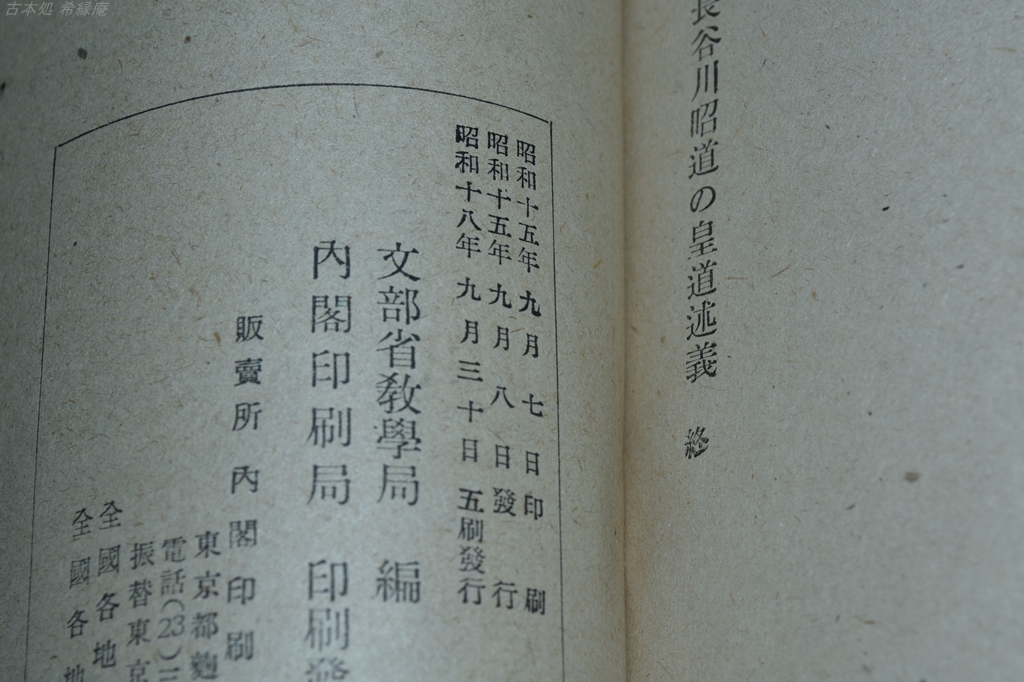 古本処 希縁庵
長谷川昭道の皇道述義 終
昭和十五年九月七日印刷
昭和十五年九月八日發行
昭和十八年九月三十日五刷發行
文部省敎學局 編
內閣印刷局 印刷發
販賣所 內閣印刷
東京都麴
電話(23)
振替東京
全國各地
全國各地